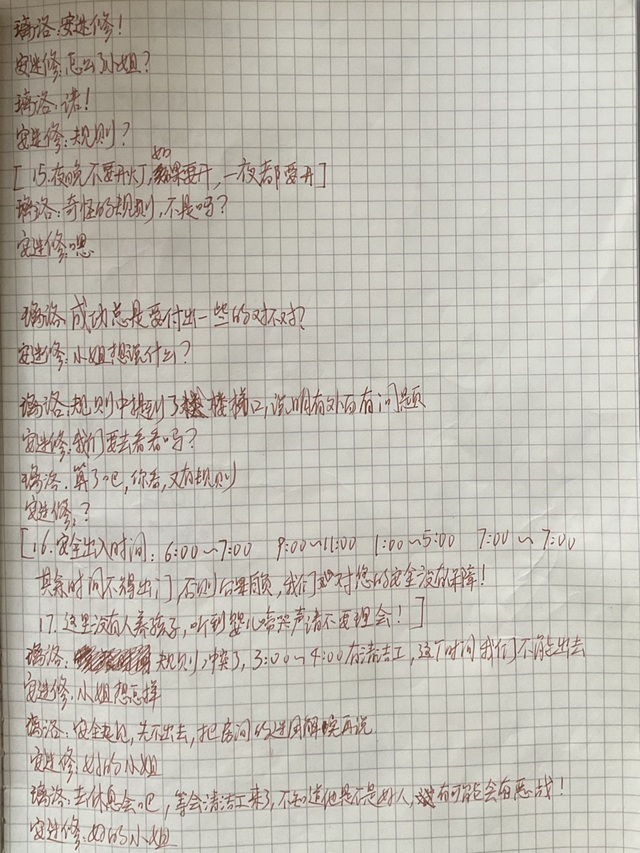 璃洛:安迷修!
安迷修:怎么了小姐?
璃洛:诺!
安迷修:规则?
[15.夜晚不要开灯,如果要开,一夜都要开]
璃洛:奇怪的规则,不是吗?
安迷修:嗯
璃洛:成功总是要付出一些的对不对?
安迷修:小姐想说什么?
璃洛:规则中提到了楼梯口,说明有外面有问题
安迷修:我们要去看看吗?
璃洛:算了吧,你看,又有规则
安迷修:?
[16.安全出入时间:6:00~7:00 9:00~11:00 1:00~5:00 7:00~7:00
其余时间不得出门,否则后果自负,我们对您的安全没有保障!
17.这里没有人养孩子,听到婴儿啼哭声请不要理会!]
璃洛:规则冲突了,3:00~4:00有清洁工,这个时间我们不能出去
安迷修:小姐想怎样
璃洛:安全起见,先不出去,把房间的迷团解唉再说
安迷修:好的小姐
璃洛:去休息会吧,等会清洁工来了,不知道他是不是好人,有可能会有恶战!
安迷修:好的小姐